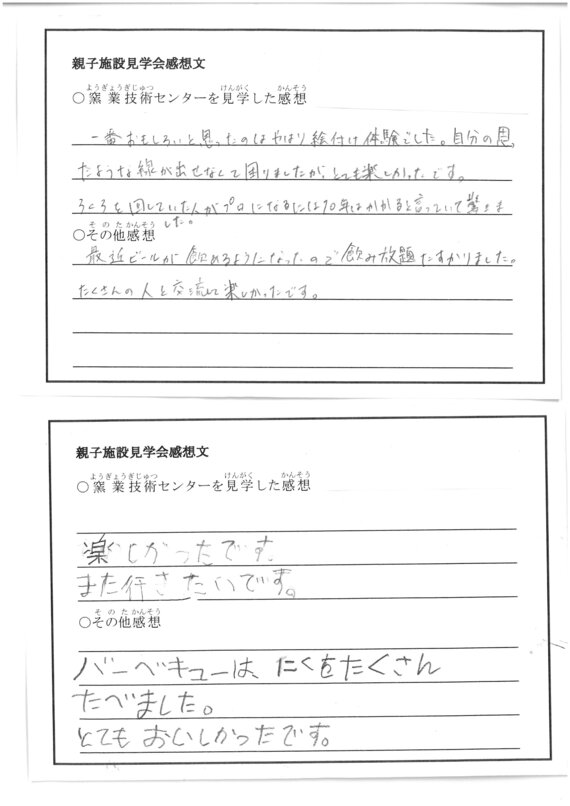 親子施設見学会感想文
ようぎょうぎじゅつ けんがく かんそう
○窯業技術センターを見学した感想
一番おもしろいと思ったのはやはり絵付け体験でした。自分の思っ
たような線が出せなくて困りましたが、とても楽しかったです。
ろくろを回していた人がプロになるには10年はかかると言っていて驚きま
した。
そのたかんそう
○その他感想
最近ビールが飲めるようになったので飲み放題たすかりました。
たくさんの人と交流して楽しかったです。
親子施設見学会感想文
ようぎょうぎじゅつ けんがく かんそう
○窯業技術センターを見学した感想
楽しかったです
また行きたいです。
そのたかんそう
○その他感想
バーベキューは、にくをたくさん
たべました。
とてもおいしかったです。